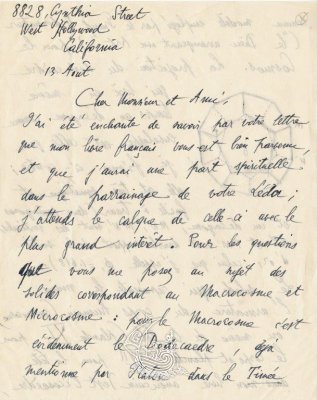 8828, Cynthia Street
West Hollywood
California
13 Août
Cher Monsieur et Ami,
J'ai été enchanté de savoir par votre lettre
que mon livre français vous est bien parvenu,
et que j'aurai une part spirituelle
dans le parrainage de votre Léda ;
j'attends le calque de celle-ci avec le
plus grand intérêt. Pour les questions
que vous me posez au sujet des
solides correspondant au Macrocosme et
Microcosme : pour le Macrocosme c'est
évidemment le Dodécaèdre, déjà
mentionné par Platon dans le Timée